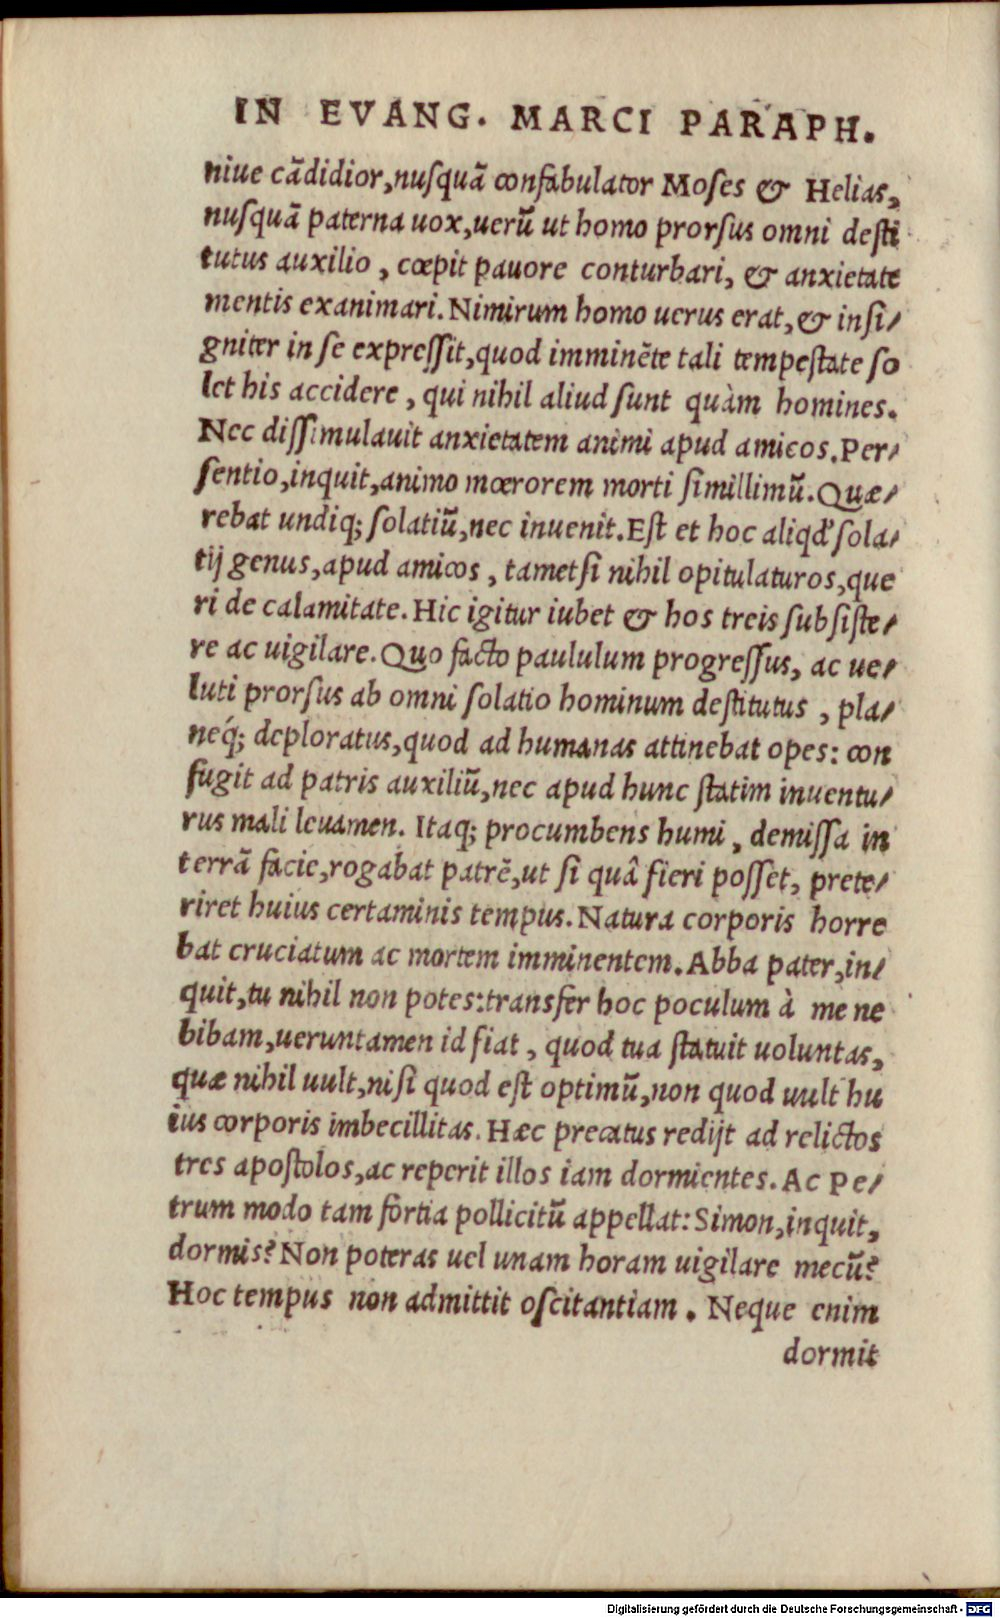 IN EVANG. MARCI PARAPH.
niue cādidior,nuſquā confabulator Moſes & Helias,
nuſquā paterna uox,uerū ut homo prorſus omni deſti
tutus auxilio , cœpit pauore conturbari, & anxietate
mentis exanimari. Nimirum homo uerus erat,& inſi/
gniter in ſe expreſſit,quod imminēte tali tempeſtate ſo
let his accidere , qui nihil aliud ſunt quàm homines.
Nec diſſimulauit anxietatem animi apud amicos. Per/
ſentio,inquit,animo mœrorem morti ſimillimū. Quæ/
rebat undiq; ſolatiū,nec inuenit. Eſt et hoc aliqd' ſola/
tij genus,apud amicos , tametſi nihil opitulaturos,que
ri de calamitate. Hic igitur iubet & hos treis ſubſiſte/
re ac uigilare. Quo facto paululum progreſſus, ac ue/
luti prorſus ab omni ſolatio hominum deſtitutus , pla/
neq́; deploratus,quod ad humanas attinebat opes: con
fugit ad patris auxiliū,nec apud hunc ſtatim inuentu/
rus mali leuamen. Itaq; procumbens humi , demiſſa in
terrā facie,rogabat patrē,ut ſi quâ fieri poſſet, prete/
riret huius certaminis tempus. Natura corporis horre
bat cruciatum ac mortem imminentem. Abba pater,in/
quit,tu nihil non potes:transfer hoc poculum à me ne
bibam,ueruntamen id fiat , quod tua ſtatuit uoluntas,
quæ nihil uult,niſi quod eſt optimū,non quod uult hu
ius corporis imbecillitas. Hæc precatus redijt ad relictos
tres apoſtolos,ac reperit illos iam dormientes. Ac Pe/
trum modo tam fortia pollicitū appellat: Simon,inquit,
dormis? Non poteras uel unam horam uigilare mecū?
Hoc tempus non admittit oſcitantiam . Neque enim
dormit
Digitalisierung gefördert durch die Deutsche Forschungsgemeinschaft - DFG